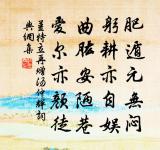 肥遁元無悶
躬耕亦自娛
曲肱安陋巷
愛尔亦顏徒
姜特立再贈湯仲輝詞
典網集